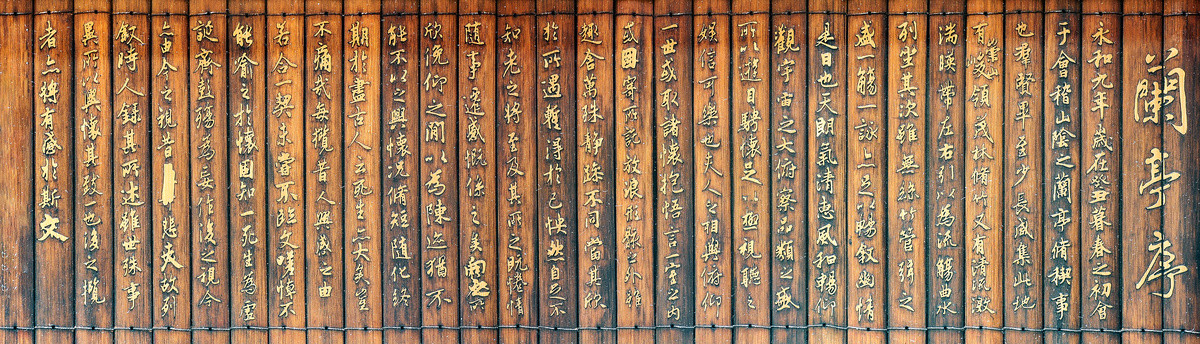 蘭亭序
永和九年歲在癸丑暮春之初會
于會稽山陰之蘭亭脩稧事
也羣賢畢至少長咸集此地
有崇山峻領茂林脩竹又有清流激
湍暎帶左右引以為流觴曲水
列坐其次雖無絲竹管弦之
盛一觴一詠亦足以暢敘幽情
是日也天朗氣清惠風和暢仰
觀宇宙之大俯察品類之盛
所以遊目騁懷足以極視聽之
娛信可樂也夫人之相與俯仰
一世或取諸懷抱悟言一室之內
或因寄所託放浪形骸之外雖
趣舍萬殊靜躁不同當其欣
於所遇蹔得於己怏然自足不
知老之將至及其所之既惓情
隨事遷感慨係之矣向之所
欣俛仰之間以為陳迹猶不
能不以之興懷況脩短隨化終
期於盡古人云死生亦大矣豈
不痛哉每攬昔人興感之由
若合一契未嘗不臨文嗟悼不
能喻之於懷固知一死生為虛
誕齊彭殤為妄作後之視今
亦由今之視昔悲夫故列
敘時人錄其所述雖世殊事
異所以興懷其致一也後之攬
者亦將有感於斯文